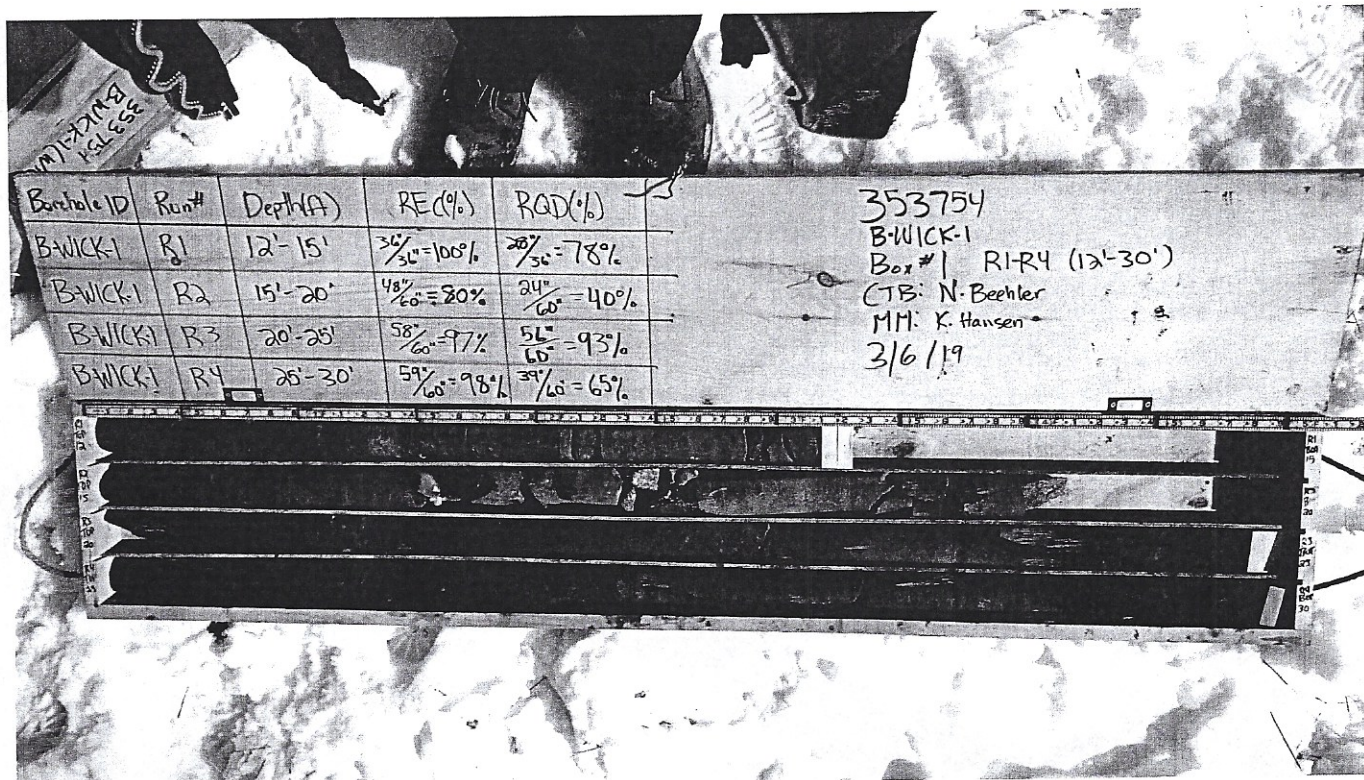 353754
B-WICK-1
Borehole ID Run# Depth(ft) REC(%) RQD(%)
B-WICK-1 R1 12'-15' 36"/36"=100% 28"/36"=78%
B-WICK-1 R2 15'-20' 48"/60"=80% 24"/60"=40%
B-WICK-1 R3 20'-25' 58"/60"=97% 56"/60"=93%
B-WICK-1 R4 25'-30' 59"/60"=98% 39"/60"=65%
353754
B-WICK-1
Box #1 R1-R4 (12'-30')
CTB: N. Beehler
MM: K. Hansen
3/6/19
R1
15
20
25
30